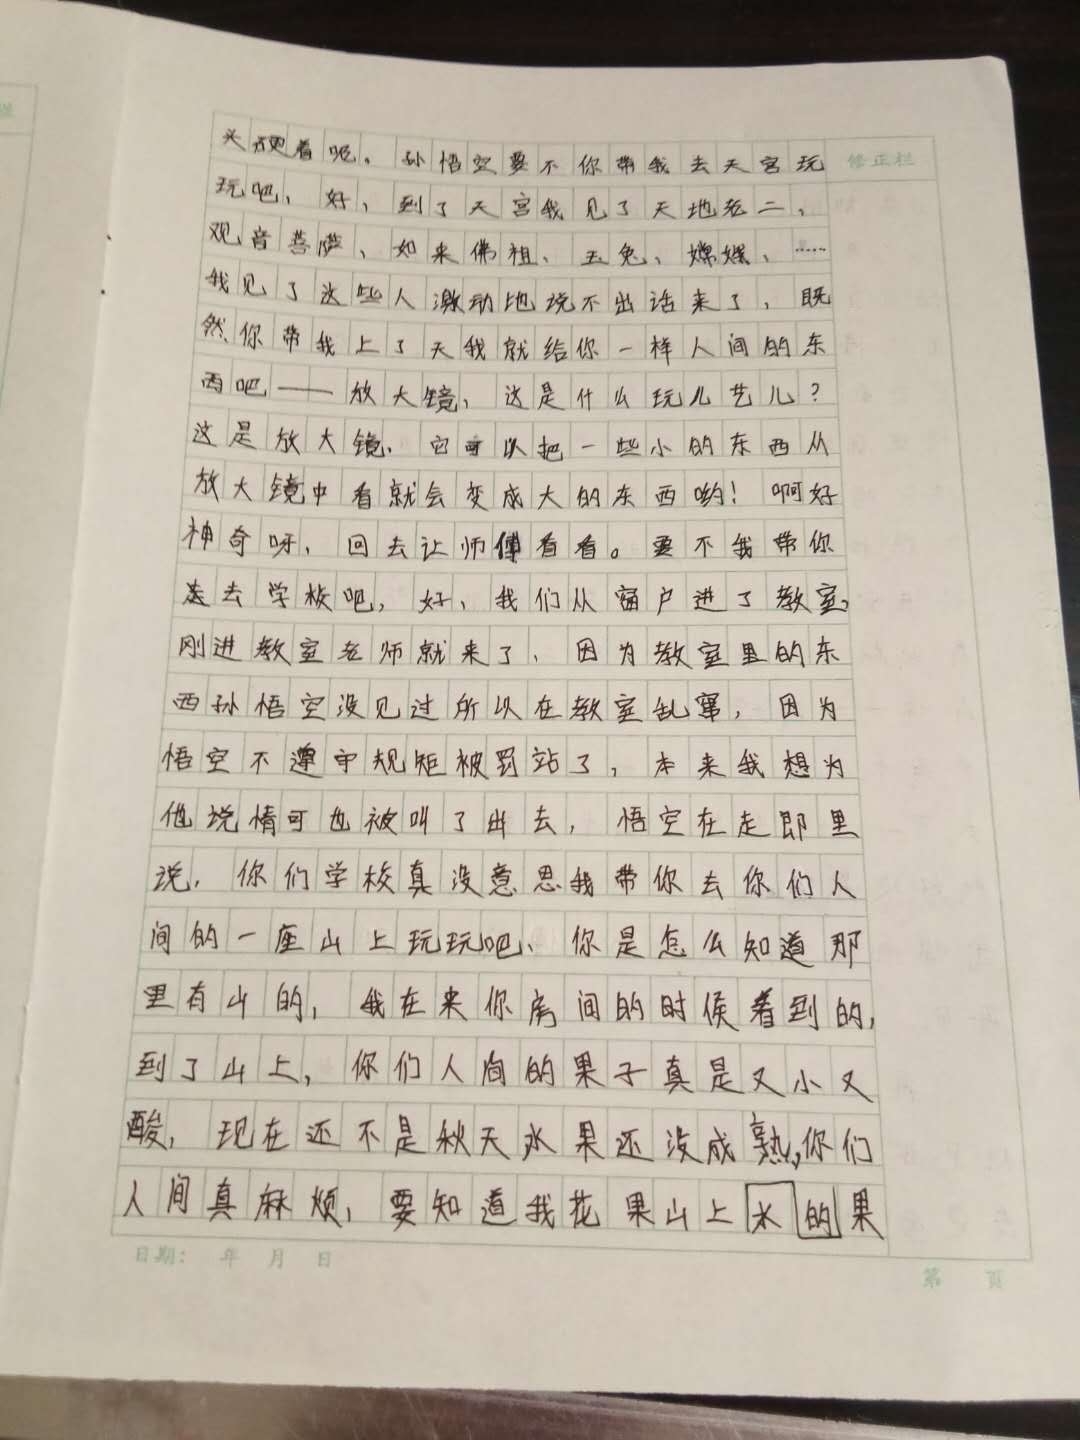 头硬着呢。孙悟空要不你带我去天宫玩
修正栏
玩吧，好，到了天宫我见了天地老二，
观音菩萨、如来佛祖、玉兔、嫦娥、……
我见了这些人激动地说不出话来了，既
然你带我上了天我就给你一样人间的东
西吧——放大镜，这是什么玩儿艺儿？
这是放大镜、它可以把一些小的东西从
放大镜中看就会变成大的东西哟！啊好
神奇呀，回去让师傅看看。要不我带你
去学校吧，好，我们从窗户进了教室，
刚进教室老师就来了、因为教室里的东
西孙悟空没见过所以在教室乱窜，因为
悟空不遵守规矩被罚站了，本来我想为
他说情可也被叫了出去，悟空在走即里
说，你们学校真没意思我带你去你们人
间的一座山上玩玩吧、你是怎么知道那
里有山的，我在来你房间的时侯看到的，
到了山上，你们人间的果子真是又小又
酸，现在还不是秋天水果还没成熟，你们
人间真麻烦，要知道我花果山上水的果
日期： 年 月 日
第 页